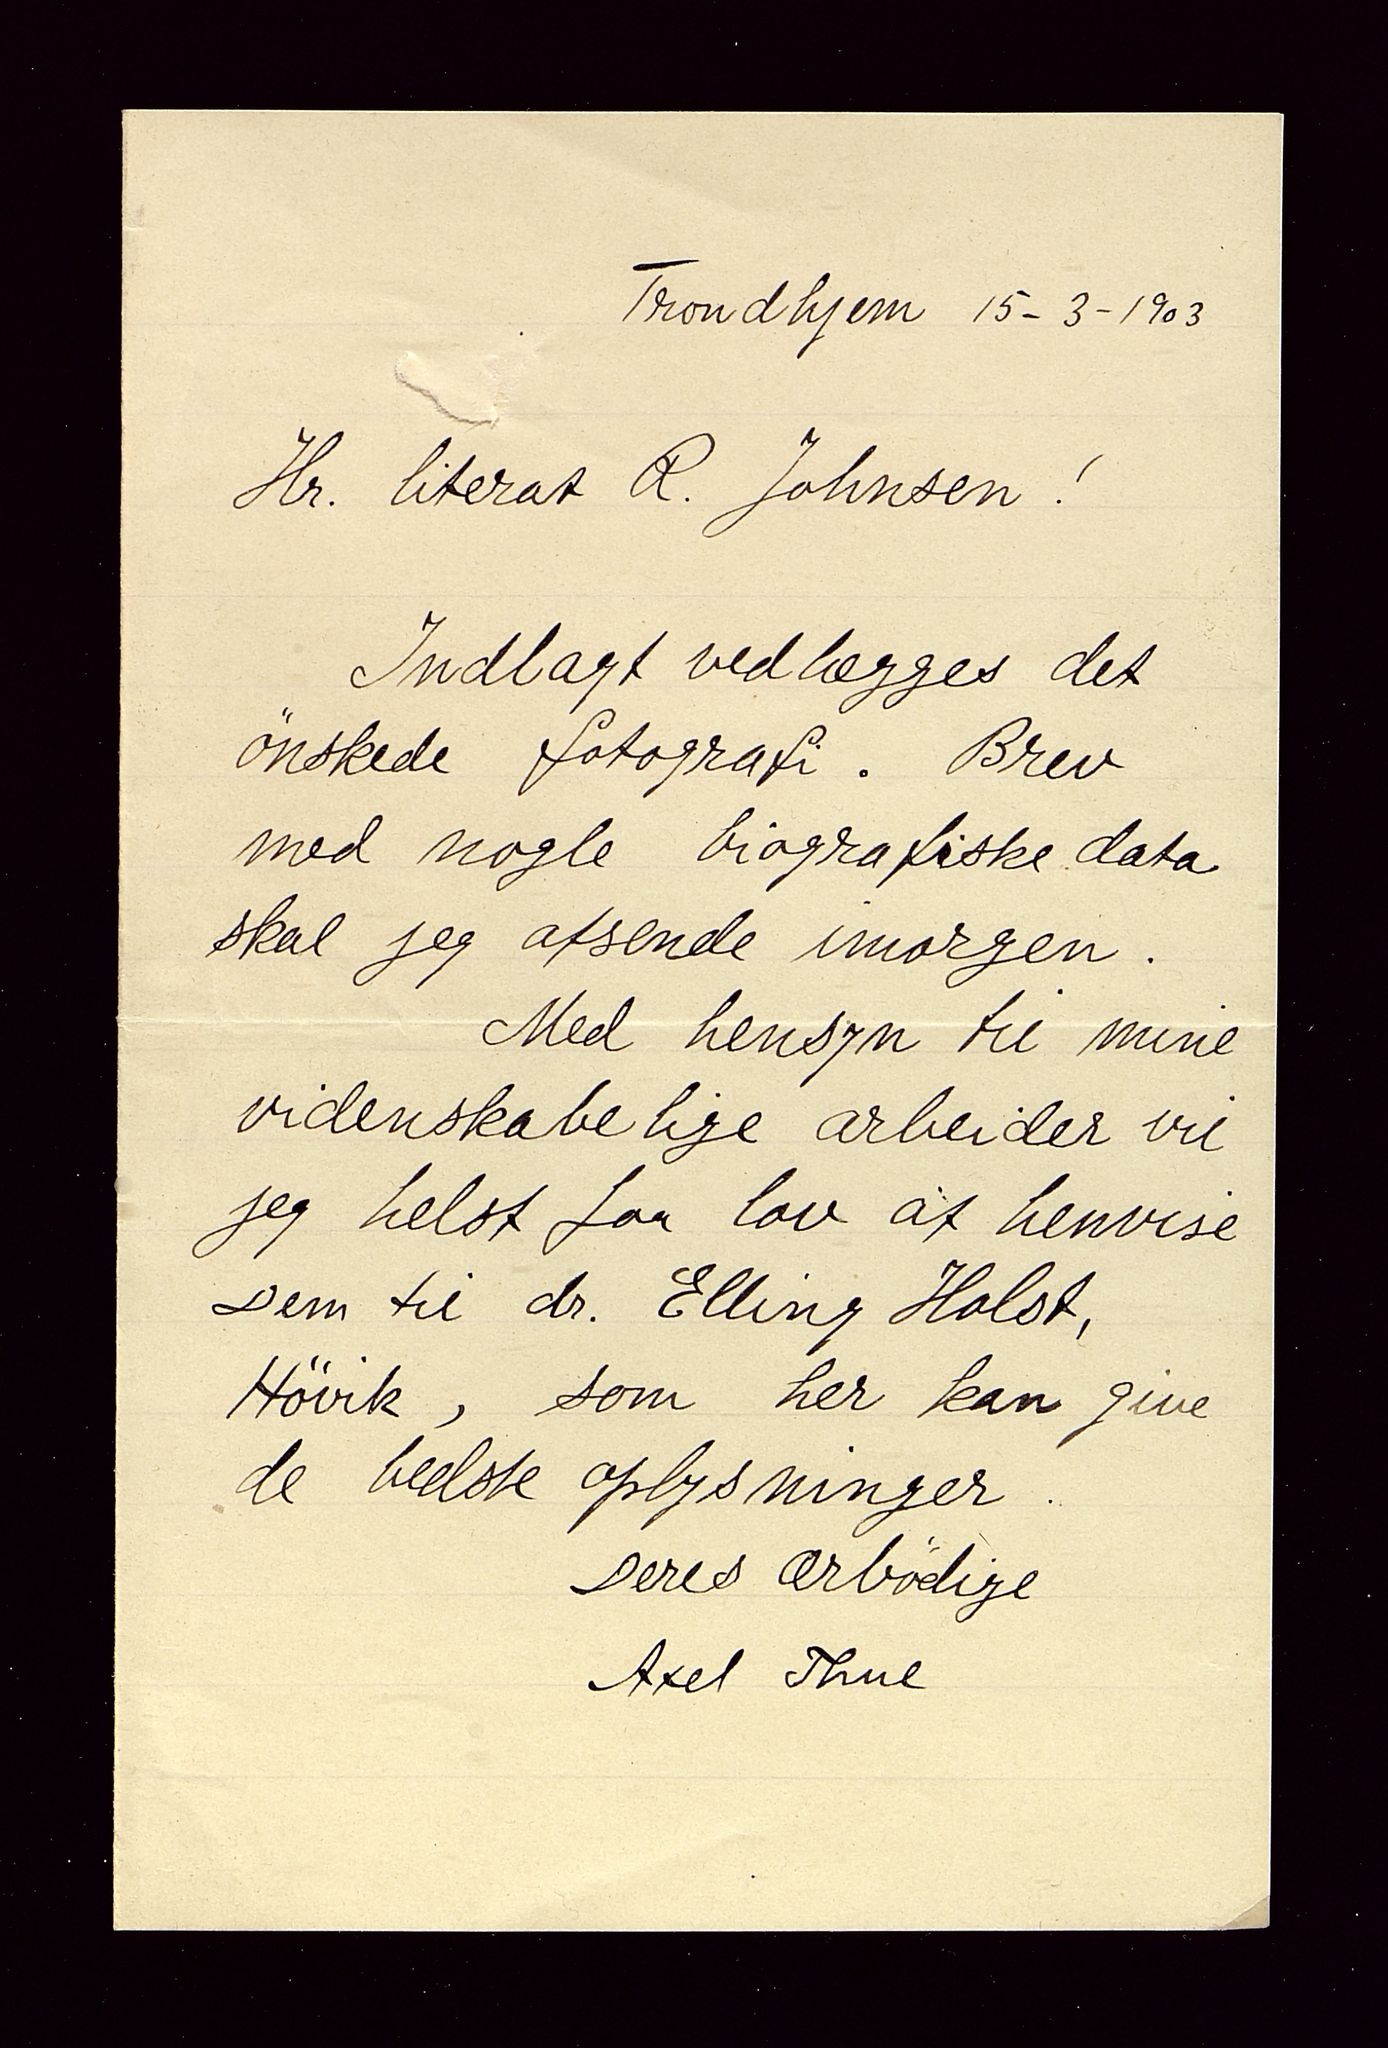 Trondhjem 15-3-1903
Hr. literat R. Johnsen!
Indlagt vedlægges det
önskede fotografi. Brev
med nogle biografiske data
skal jeg afsende imorgen.
Med hensyn til mine
videnskabelige arbeider vil
jeg helst faa lov at henvise
Dem til dr. Elling Holst,
Hövik, som her kan give
de bedste oplysninger.
Deres ærbödige
Axel Thue